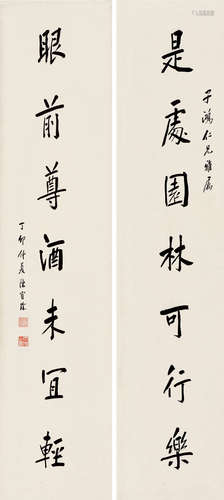 是處園林可行樂
子鴻仁兄雅屬
眼前尊酒未宜輕
丁卯仲夏陳寶琛